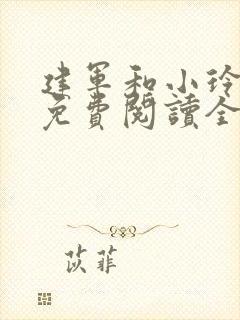 建軍和小玲
免費閱讀全
苡菲